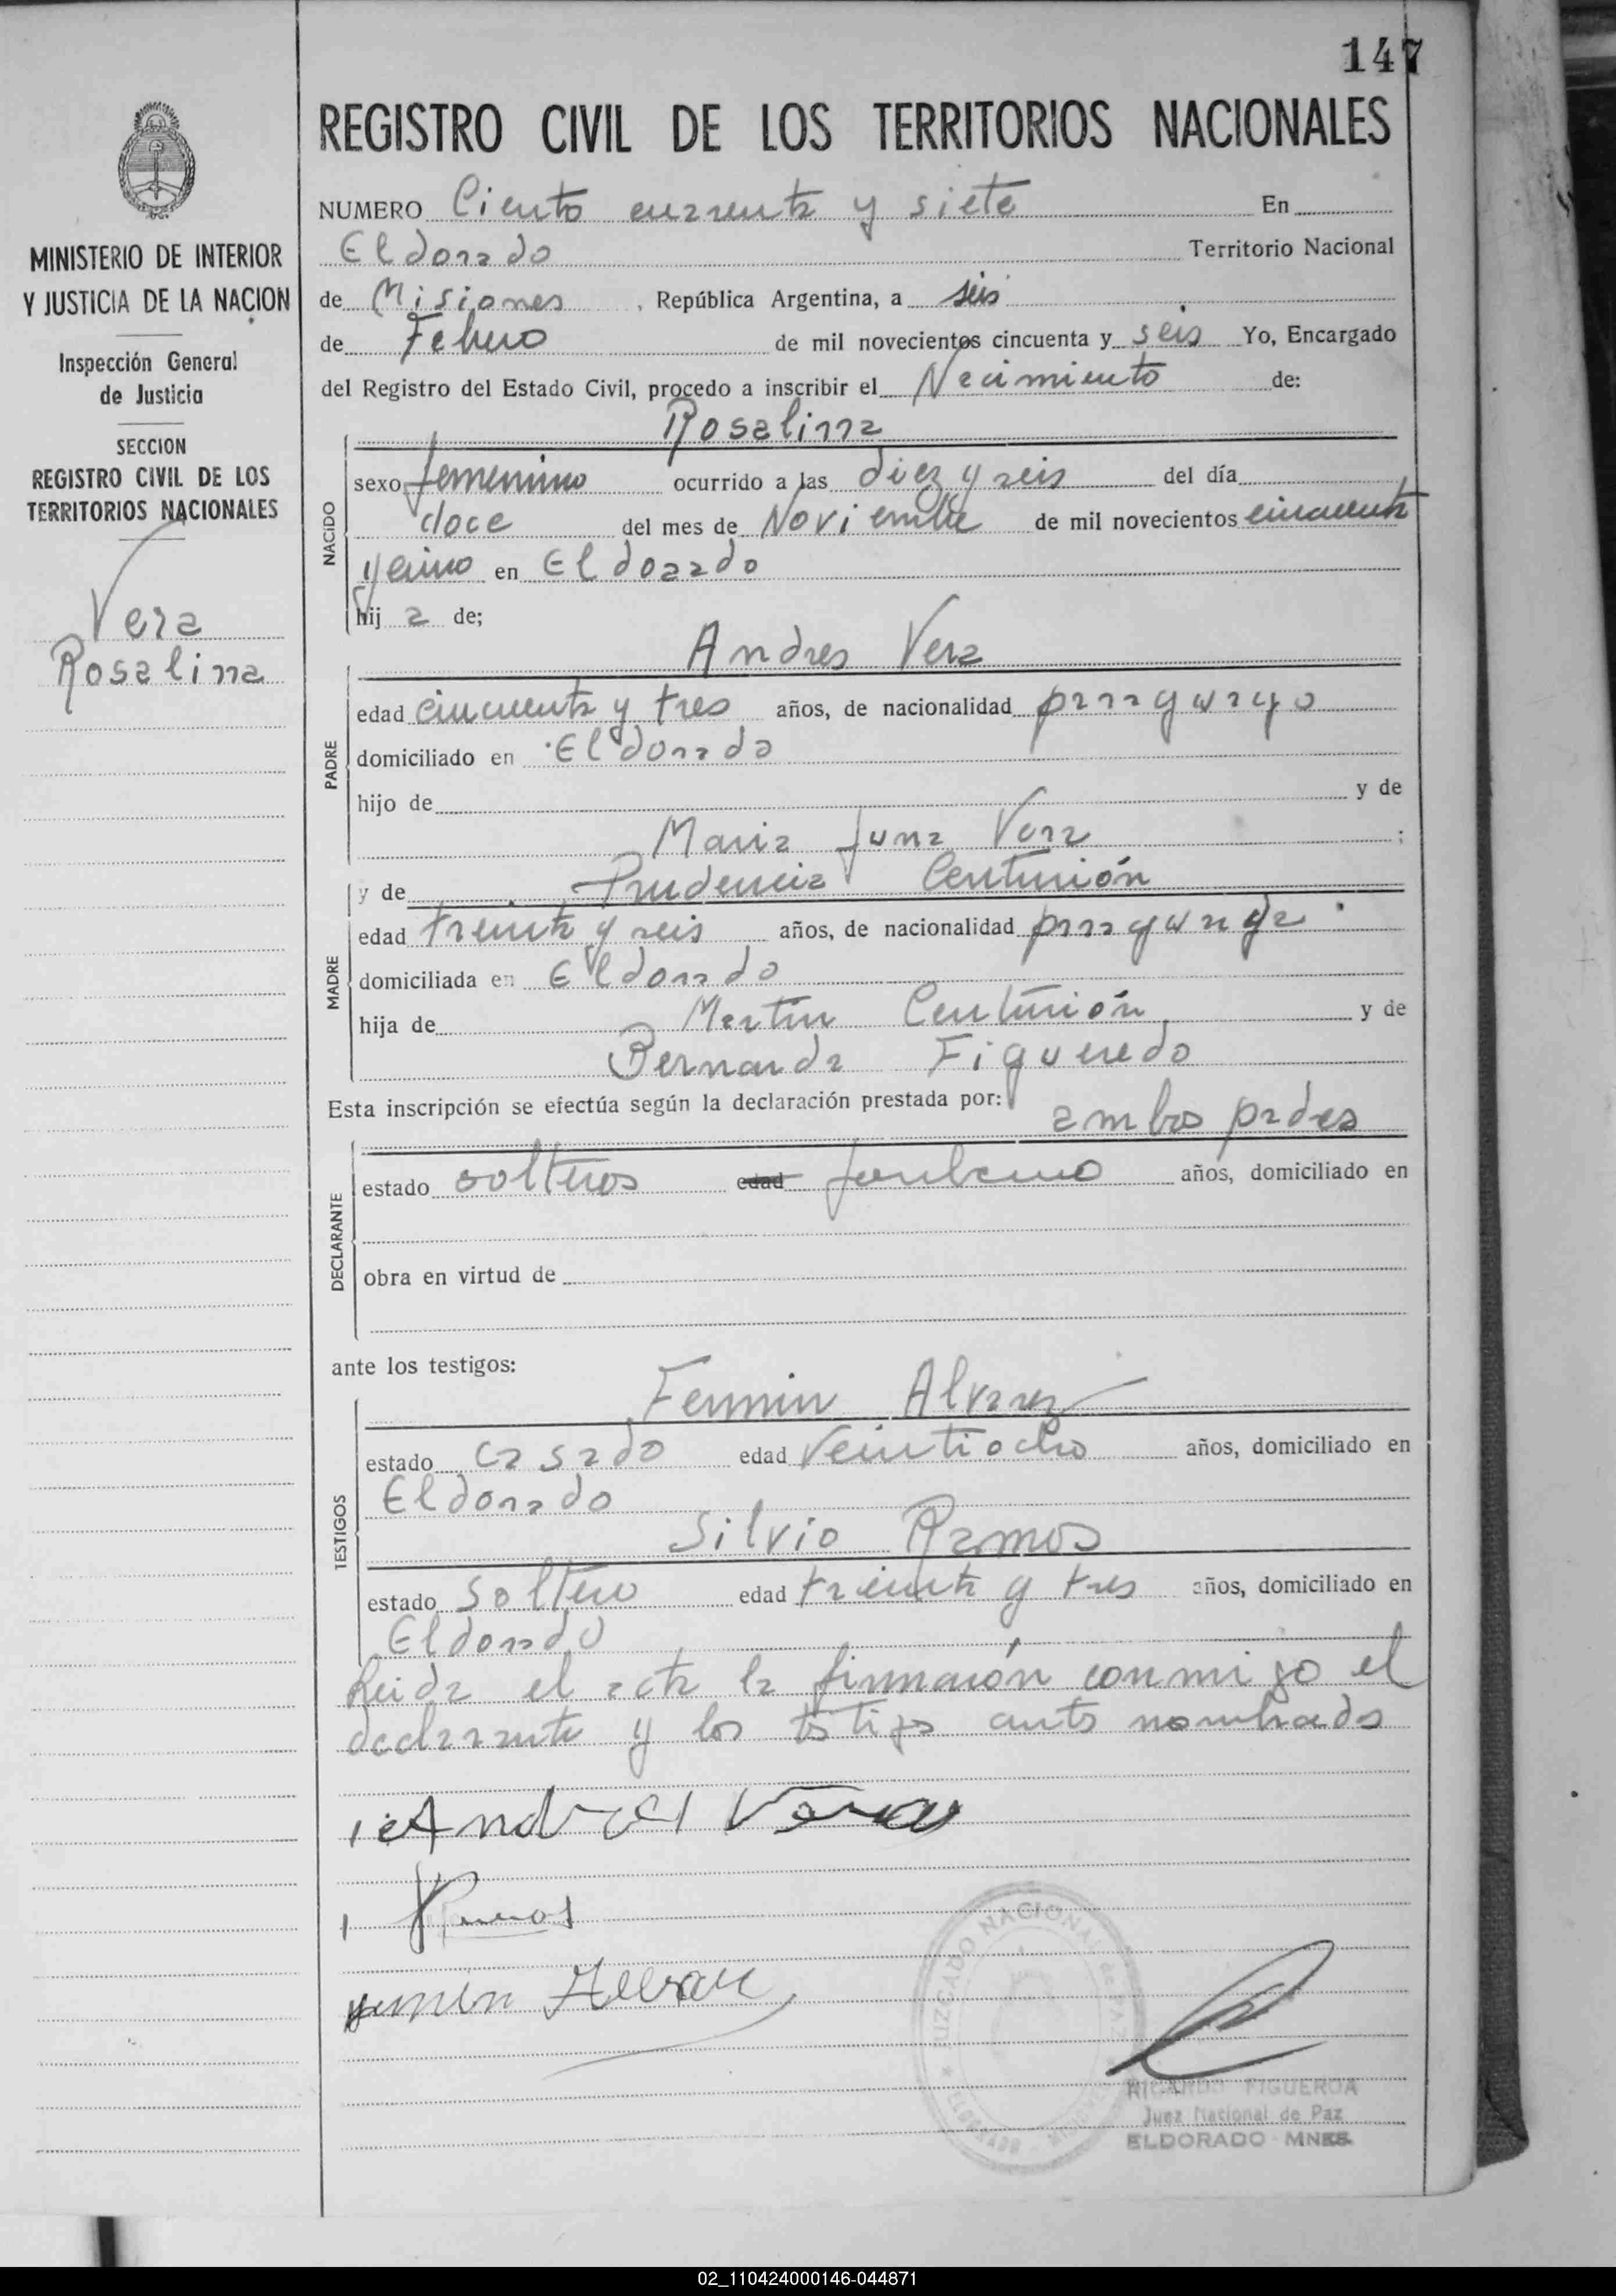 147
REGISTRO CIVIL DE LOS TERRITORIOS NACIONALES
MINISTERIO DE INTERIOR
Y JUSTICIA DE LA NACION
Inspección General
de Justicia
SECCION
REGISTRO CIVIL DE LOS
TERRITORIOS NACIONALES
Vera
Rosalina
NUMERO Ciento cuarenta y siete En
Eldorado Territorio Nacional
de Misiones, República Argentina, a seis
de Febrero de mil novecientos cincuenta y seis Yo, Encargado
del Registro del Estado Civil, procedo a inscribir el Nacimiento de:
Rosalina
NACIDO
sexo femenino ocurrido a las diez y seis del día
doce del mes de Noviembre de mil novecientos cincuenta
y cinco en Eldorado
hij a de;
Andres Vera
PADRE
edad cincuenta y tres años, de nacionalidad paraguayo
domiciliado en Eldorado
hijo de y de
Maria Juna Vera ;
y de Prudencia Centurión
MADRE
edad treinta y seis años, de nacionalidad paraguaya
domiciliada en Eldorado
hija de Martin Centurión y de
Bernarda Figueredo
Esta inscripción se efectúa según la declaración prestada por: ambos padres
DECLARANTE
estado solteros edad años, domiciliado en
obra en virtud de
ante los testigos:
Fermin Alvarez
TESTIGOS
estado casado edad Veintiocho años, domiciliado en
Eldorado
Silvio Ramos
estado Soltero edad treinta y tres años, domiciliado en
Eldorado
Leida el acta la firmarón conmigo el
declarante y los testigos antes nombrados
Andres Vera
Ramos
JUZGADO NACIONAL de PAZ
RICARDO FIGUEROA
Juez Nacional de Paz
ELDORADO - MNES.
02_110424000146-044871